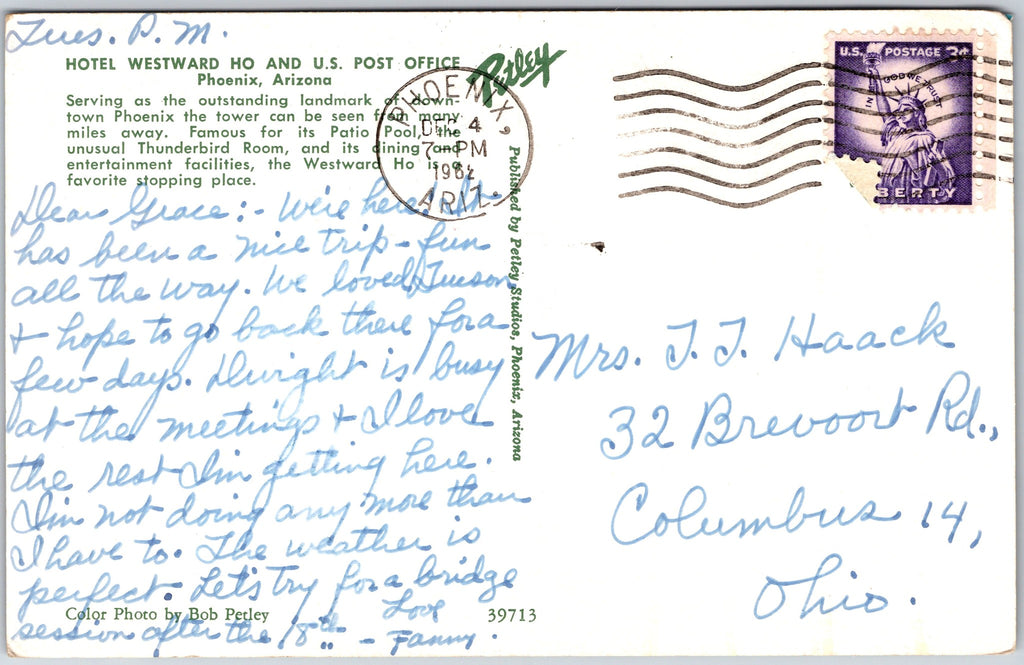 Tues. P.M.
HOTEL WESTWARD HO AND U.S. POST OFFICE
Phoenix, Arizona
Serving as the outstanding landmark of down-
town Phoenix the tower can be seen from many
miles away. Famous for its Patio Pool, the
unusual Thunderbird Room, and its dining and
entertainment facilities, the Westward Ho is a
favorite stopping place.
Petley
PHOENIX,
DEC 4
7 - PM
1962
ARIZ.
U.S. POSTAGE 3¢
IN GOD WE TRUST
BERTY
Dear Grace:- We're here. It
has been a nice trip - fun
all the way. We loved Tucson
+ hope to go back there for a
few days. Dwight is busy
at the meetings + I love
the rest I'm getting here.
I'm not doing any more than
I have to. The weather is
perfect. Let's try for a bridge
session after the 18th - Love
Fanny.
Published by Petley Studios, Phoenix, Arizona
Mrs. J. J. Haack
32 Brevoort Rd.,
Columbus 14,
Ohio.
Color Photo by Bob Petley
39713